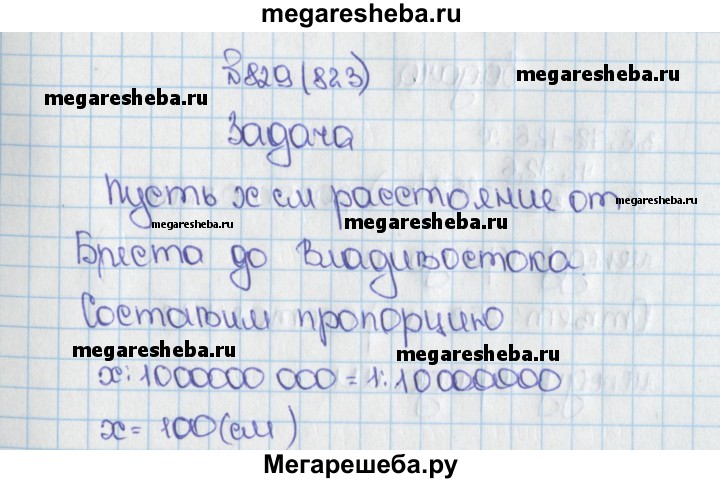 megaresheba.ru
№829(823)
megaresheba.ru megaresheba.ru
Задача
Пусть x см расстояние от
megaresheba.ru megaresheba.ru megaresheba.ru
Бреста до Владивостока.
Составим пропорцию
megaresheba.ru megaresheba.ru
x:1000000 000=1:10000000
x=100(см)
Мегарешеба.ру